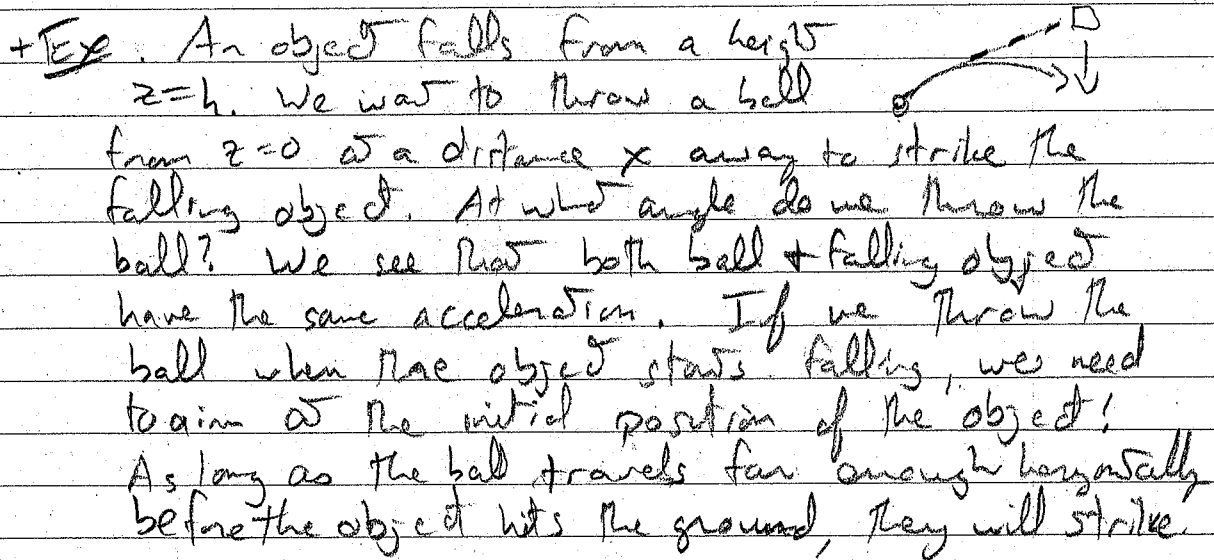 + Ex. An object falls from a height
z=h. We want to throw a ball
from z=0 at a distance x away to strike the
falling object. At what angle do we throw the
ball? We see that both ball + falling object
have the same acceleration. If we throw the
ball when the object starts falling, we need
to aim at the initial position of the object!
As long as the ball travels far enough horizontally
before the object hits the ground, they will strike.